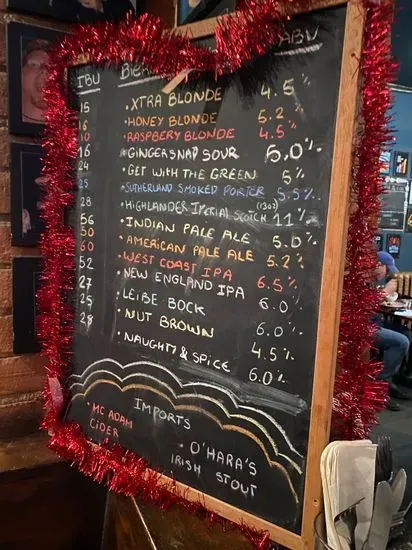 IBU ABV
15 • XTRA BLONDE 4.5%
16 • HONEY BLONDE 5.2%
10 • RASPBERY BLONDE 4.5%
16 • GINGERSNAP SOUR 5.0%
24 • GET WITH THE GREEN 5%
25 • SUTHERLAND SMOKED PORTER 5.5%
28 • HIGHLANDER IMPERIAL SCOTCH (13oz) 11%
56 • INDIAN PALE ALE 5.0%
50 • AMERICAN PALE ALE 5.2%
60 • WEST COAST IPA 6.5%
52 • NEW ENGLAND IPA 6.0%
27 • LEIBE BOCK 6.0%
25 • NUT BROWN 4.5%
28 • NAUGHTY & SPICE 6.0%
IMPORTS
• MC ADAM
CIDER
• O'HARA'S
IRISH STOUT